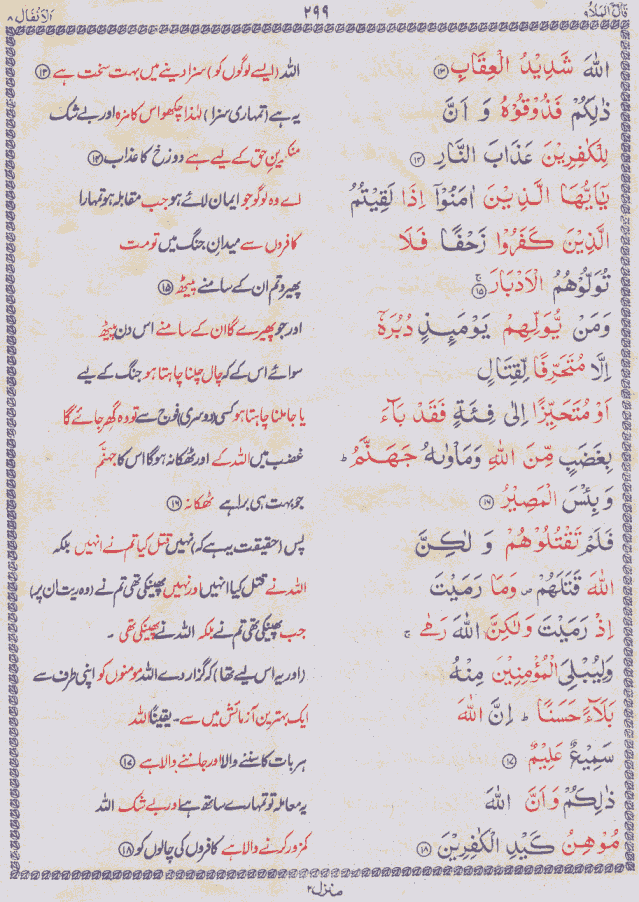 قَالَ الْمَلَاُ ۹ ۲۹۹ اَلْاَنْفَال ۸
اللّٰهَ شَدِيْدُ الْعِقَابِ ۱۳ اللہ (ایسے لوگوں کو) سزا دینے میں بہت سخت ہے ۱۳
ذٰلِكُمْ فَذُوْقُوْهُ وَ اَنَّ یہ ہے (تمہاری سزا) لہٰذا چکھو اس کا مزہ اور بے شک
لِلْكٰفِرِيْنَ عَذَابَ النَّارِ ۱۴ منکرینِ حق کے لیے ہے دوزخ کا عذاب ۱۴
يٰۤاَيُّهَا الَّذِيْنَ اٰمَنُوْۤا اِذَا لَقِيْتُمُ اے وہ لوگو جو ایمان لائے ہو جب مقابلہ ہو تمہارا
الَّذِيْنَ كَفَرُوْا زَحْفًا فَلَا کافروں سے میدانِ جنگ میں تو مت
تُوَلُّوْهُمُ الْاَدْبَارَ ۚ ۱۵ پھیرو تم ان کے سامنے پیٹھ ۱۵
وَمَنْ يُّوَلِّهِمْ يَوْمَئِذٍ دُبُرَهٗۤ اور جو پھیرے گا ان کے سامنے اس دن پیٹھ
اِلَّا مُتَحَرِّفًا لِّقِتَالٍ سوائے اس کے کہ چال چلنا چاہتا ہو جنگ کے لیے
اَوْ مُتَحَيِّزًا اِلٰى فِئَةٍ فَقَدْ بَآءَ یا جا ملنا چاہتا ہو کسی (دوسری) فوج سے تو وہ گھِر جائے گا
بِغَضَبٍ مِّنَ اللّٰهِ وَمَاْوٰىهُ جَهَنَّمُ ؕ غضب میں اللہ کے اور ٹھکانہ ہوگا اس کا جہنّم
وَ بِئْسَ الْمَصِيْرُ ۱۶ جو بہت ہی برا ہے ٹھکانہ ۱۶
فَلَمْ تَقْتُلُوْهُمْ وَ لٰكِنَّ پس (حقیقت یہ ہے کہ) نہیں قتل کیا تم نے انہیں بلکہ
اللّٰهَ قَتَلَهُمْ ۪ وَمَا رَمَيْتَ اللہ نے قتل کیا انہیں اور نہیں پھینکی تھی تم نے (وہ ریت ان پر)
اِذْ رَمَيْتَ وَلٰكِنَّ اللّٰهَ رَمٰى ۚ جب پھینکی تھی تم نے بلکہ اللہ نے پھینکی تھی ۔
وَلِيُبْلِىَ الْمُؤْمِنِيْنَ مِنْهُ (اور یہ اس لیے تھا) کہ گزار دے اللہ مومنوں کو اپنی طرف سے
بَلَآءً حَسَنًا ؕ اِنَّ اللّٰهَ ایک بہترین آزمائش میں سے ۔ یقیناً اللہ
سَمِيْعٌ عَلِيْمٌ ۱۷ ہر بات کا سننے والا اور جاننے والا ہے ۱۷
ذٰلِكُمْ وَاَنَّ اللّٰهَ یہ معاملہ تو تمہارے ساتھ ہے اور بے شک اللہ
مُوْهِنُ كَيْدِ الْكٰفِرِيْنَ ۱۸ کمزور کرنے والا ہے کافروں کی چالوں کو ۱۸
منزل ۲